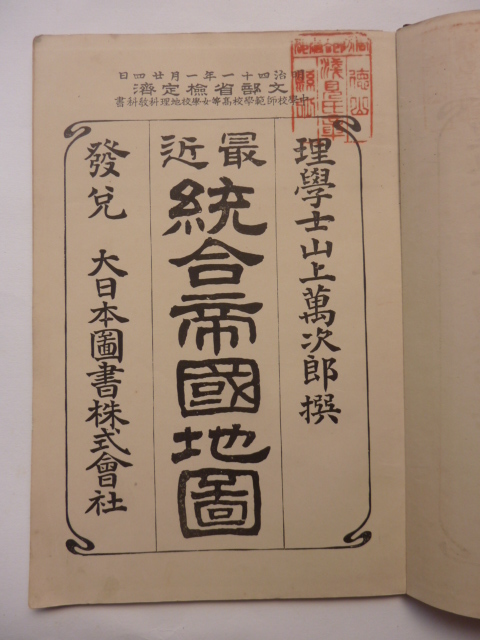 明治四十一年一月廿四日
文部省檢定濟
中學校師範學校高等女學校地理科教科書
理學士山上萬次郎撰
最近
統合帝國地圖
發兌 大日本圖書株式會社